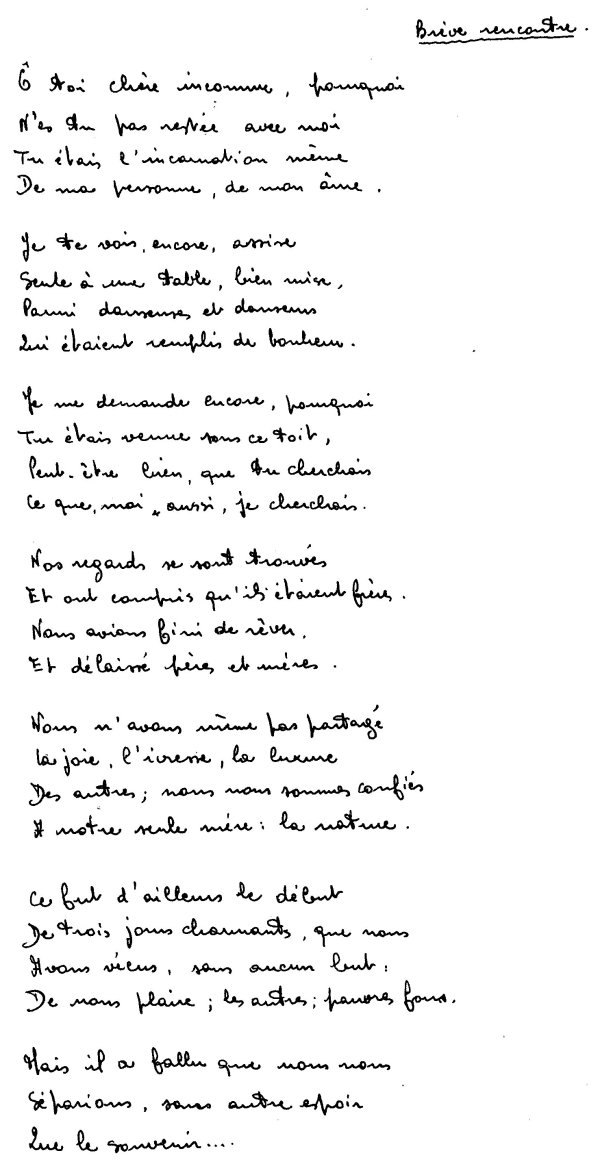 Brève rencontre.
Ô toi chère inconnue, pourquoi
N'es tu pas restée avec moi
Tu étais l'incarnation même
De ma personne, de mon âme.
Je te vois, encore, assise
Seule à une table, bien mise,
Parmi danseuses et danseurs
Qui étaient remplis de bonheur.
Je me demande encore, pourquoi
Tu étais venue sous ce toit,
Peut-être bien, que tu cherchais
Ce que, moi, aussi, je cherchais.
Nos regards se sont trouvés
Et ont compris qu'ils étaient frères.
Nous avions fini de rêver,
Et délaissé pères et mères.
Nous n'avons même pas partagé
La joie, l'ivresse, la luxure
Des autres; nous nous sommes confiés
A notre seule mère: la nature.
Ce fut d'ailleurs le début
De trois jours charmants, que nous
Avons vécus, sans aucun but:
De nous plaire; les autres; pauvres fous.
Mais il a fallu que nous nous
Séparions, sans autre espoir
Que le souvenir....